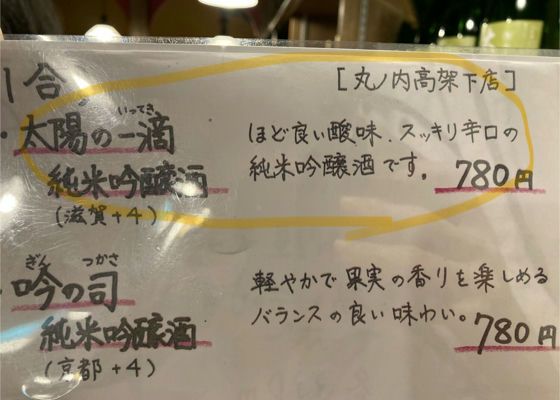 1合
[丸ノ内高架下店]
いってき
・太陽の一滴
純米吟醸酒
(滋賀+4)
ほど良い酸味、スッキリ辛口の
純米吟醸酒です。
780円
ぎん つかさ
・吟の司
純米吟醸酒
(京都+4)
軽やかで果実の香りを楽しめる
バランスの良い味わい。
780円